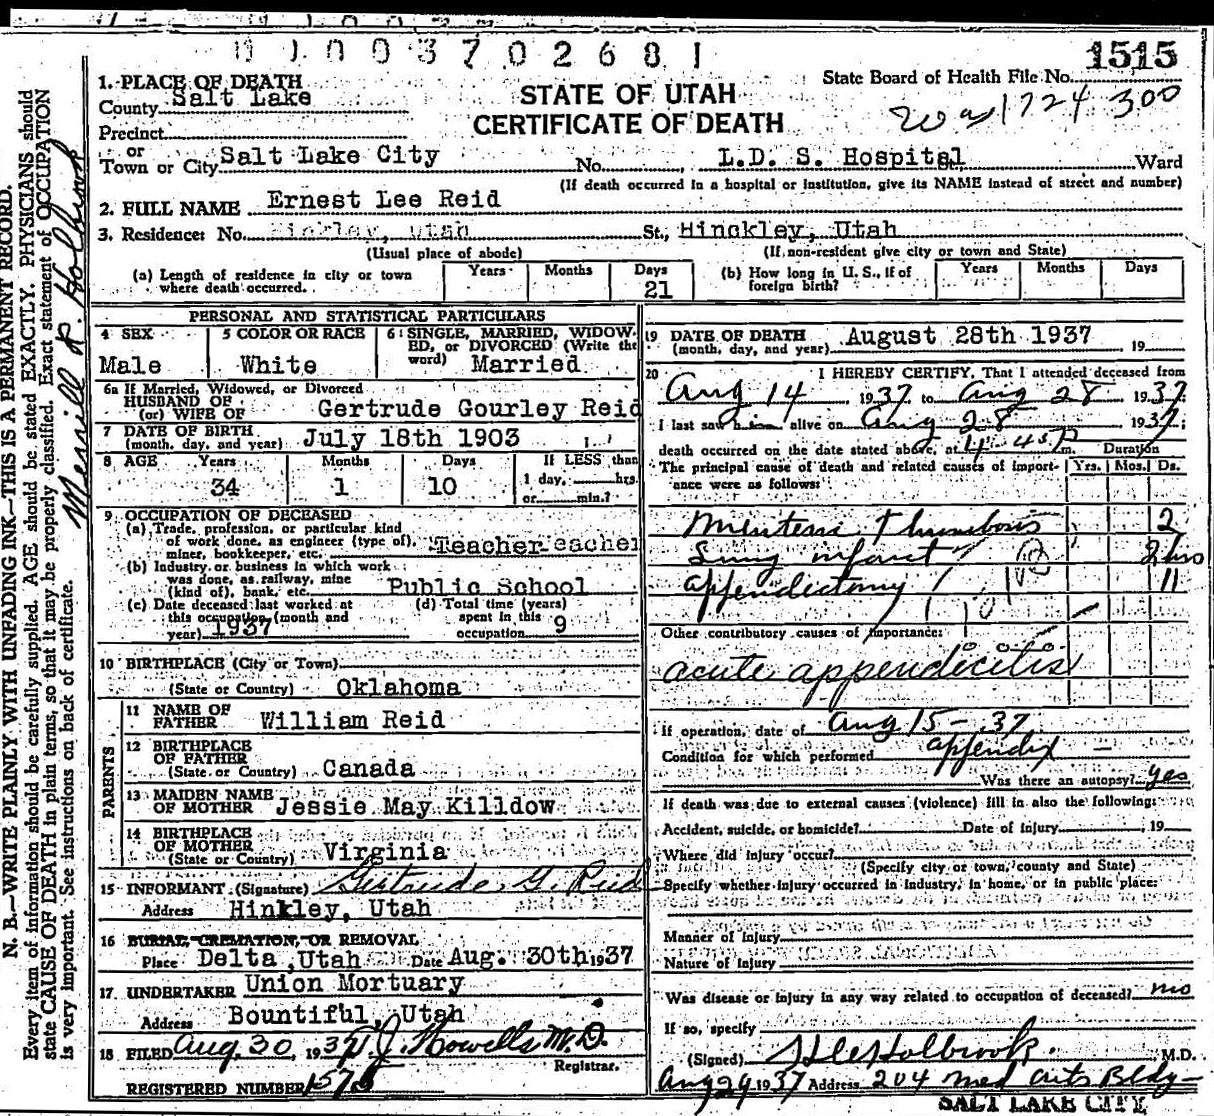 1003702681
1515
State Board of Health File No.
1724 300
1. PLACE OF DEATH
County Salt Lake
STATE OF UTAH
CERTIFICATE OF DEATH
Precinct
or
Town or City Salt Lake City No. L.D. S. Hospital St., Ward
(If death occurred in a hospital or institution, give its NAME instead of street and number)
2. FULL NAME Ernest Lee Reid
3. Residence: No. Hinkley, Utah St., Hinckley, Utah
(Usual place of abode) (If non-resident give city or town and State)
(a) Length of residence in city or town where death occurred. Years Months Days 21
(b) How long in U. S., if of foreign birth? Years Months Days
PERSONAL AND STATISTICAL PARTICULARS
4 SEX Male
5 COLOR OR RACE White
6 SINGLE, MARRIED, WIDOW-
ED, or DIVORCED (Write the
word) Married
6a If Married, Widowed, or Divorced
HUSBAND OF
(or) WIFE OF Gertrude Gourley Reid
7 DATE OF BIRTH
(month, day, and year) July 18th 1903
8 AGE Years 34 Months 1 Days 10 If LESS than
1 day, hrs.
or min.?
9 OCCUPATION OF DECEASED
(a) Trade, profession, or particular kind
of work done, as engineer (type of),
miner, bookkeeper, etc. Teacher
(b) Industry or business in which work
was done, as railway, mine
(kind of), bank, etc. Public School
(c) Date deceased last worked at
this occupation (month and
year) 1937
(d) Total time (years)
spent in this
occupation 9
10 BIRTHPLACE (City or Town)
(State or Country) Oklahoma
PARENTS
11 NAME OF
FATHER William Reid
12 BIRTHPLACE
OF FATHER
(State or Country) Canada
13 MAIDEN NAME
OF MOTHER Jessie May Killdow
14 BIRTHPLACE
OF MOTHER
(State or Country) Virginia
15 INFORMANT (Signature) Gertrude G. Reid
Address Hinkley, Utah
16 BURIAL, CREMATION, OR REMOVAL
Place Delta, Utah Date Aug. 30th 1937
17 UNDERTAKER Union Mortuary
Address Bountiful, Utah
18 FILED Aug. 30, 1937 Howells M.D.
Registrar.
REGISTERED NUMBER 1575
19 DATE OF DEATH
(month, day, and year) August 28th 1937 19
20 I HEREBY CERTIFY, That I attended deceased from
Aug 14 1937 to Aug 28 1937
I last saw him alive on Aug 28 1937;
death occurred on the date stated above, at 4:45 P m. Duration
The principal cause of death and related causes of import-
ance were as follows: Yrs. Mos. Ds.
Thrombosis 2
Lung infarct 2 hrs
appendectomy 11
Other contributory causes of importance:
acute appendicitis
If operation, date of Aug 15-37
Condition for which performed appendix
Was there an autopsy? yes
If death was due to external causes (violence) fill in also the following:
Accident, suicide, or homicide? Date of injury , 19
Where did injury occur?
(Specify city or town, county and State)
Specify whether injury occurred in industry, in home, or in public place:
Manner of injury
Nature of injury
Was disease or injury in any way related to occupation of deceased? no
If so, specify
(Signed) Holbrook M.D.
Aug 29 1937 Address 204 Med Arts Bldg
SALT LAKE CITY
N. B.—WRITE PLAINLY WITH UNFADING INK—THIS IS A PERMANENT RECORD.
Every item of information should be carefully supplied. AGE should be stated EXACTLY. PHYSICIANS should
state CAUSE OF DEATH in plain terms, so that it may be properly classified. Exact statement of OCCUPATION
is very important. See instructions on back of certificate.
Merrill R. Holbrook